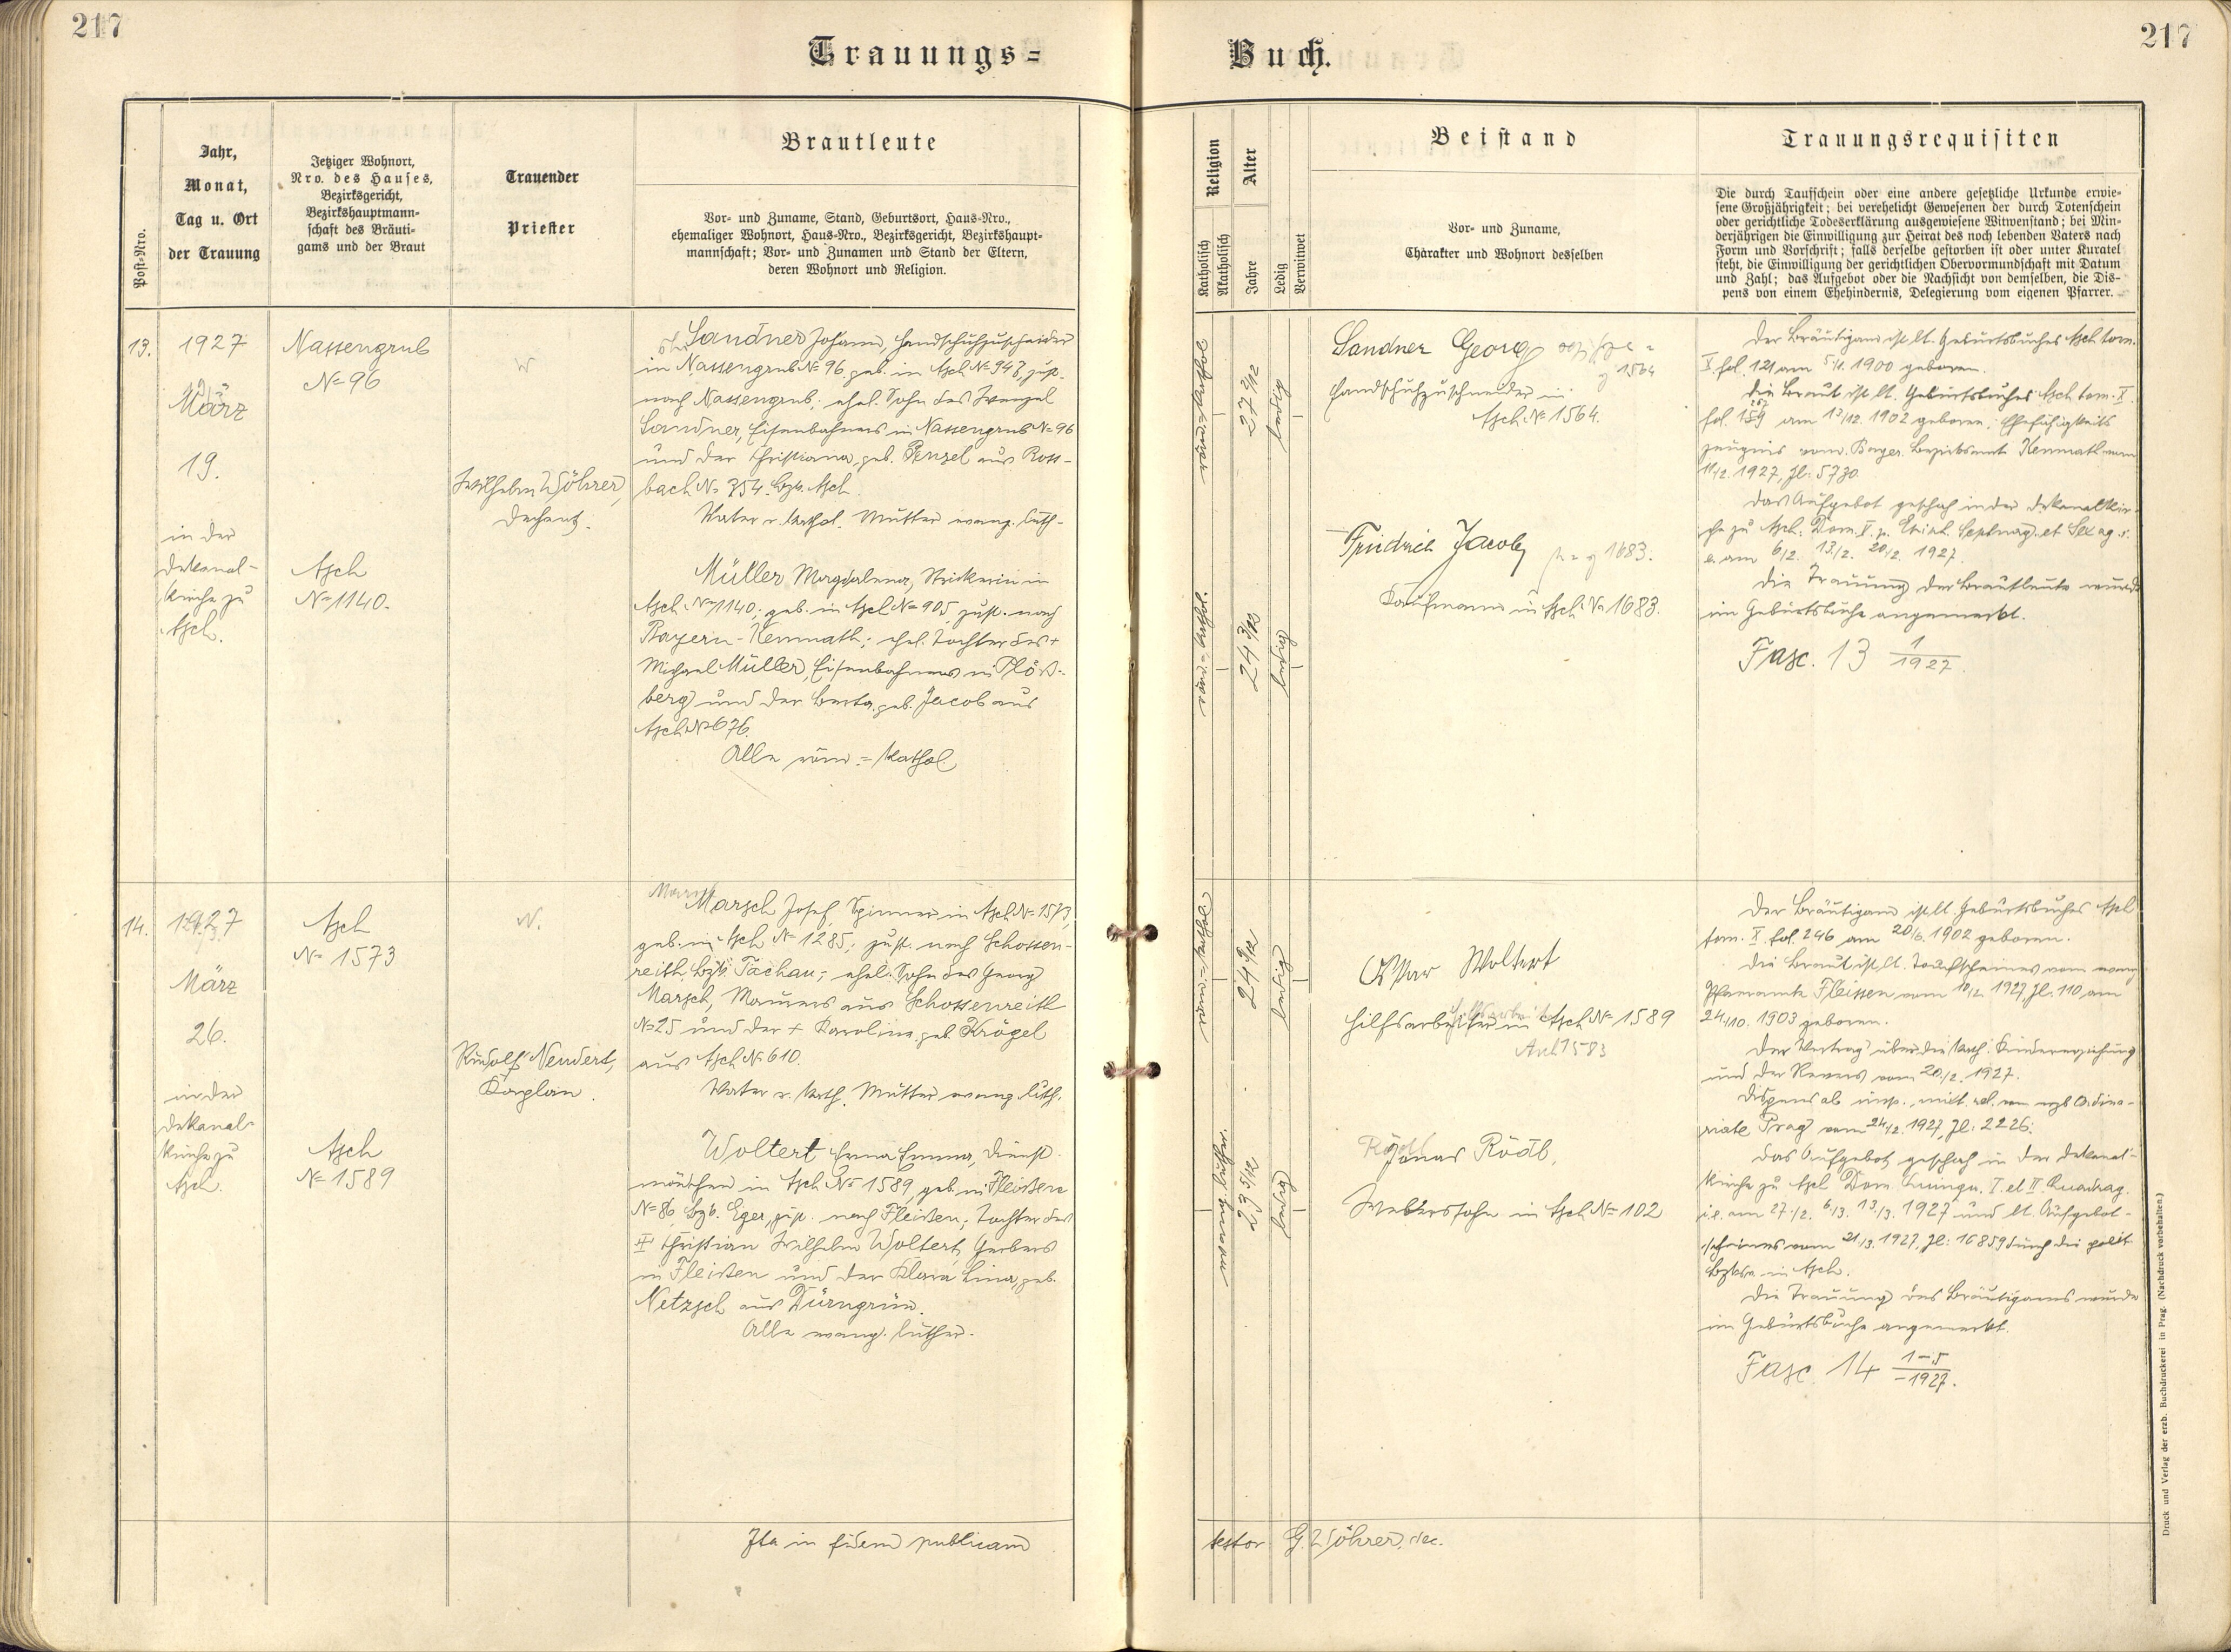 217
Trauungs=
Post=Nro.
Jahr,
Monat,
Tag u. Ort
der Trauung
Jetziger Wohnort,
Nro. des Hauses,
Bezirksgericht,
Bezirkshauptmann=
schaft des Bräuti=
gams und der Braut
Trauender
Priester
Brautleute
Vor= und Zuname, Stand, Geburtsort, Haus=Nro.,
ehemaliger Wohnort, Haus=Nro., Bezirksgericht, Bezirkshaupt=
mannschaft; Vor= und Zunamen und Stand der Eltern,
deren Wohnort und Religion.
13.
1927
März
19.
in der
Dekanal-
kirche zu
Asch.
Nassengrub
№ 96
Asch
№ 1140.
W
Wilhelm Wöhrer,
Dechant.
Sandner Johann, Handschuhzuschneider
in Nassengrub № 96, geb. in Asch № 943, zust.
nach Nassengrub; ehel. Sohn des Wenzel
Sandner, Eisenbahners in Nassengrub № 96
und der Christiana, geb. Penzel aus Ross-
bach № 354. Bzk. Asch.
Vater r. kathol. Mutter evang. luth.
Müller Magdalena, Strickerin in
Asch № 1140; geb. in Asch № 905, zust. nach
Bayern-Kemnath; ehel. Tochter des +
Michael Müller, Eisenbahners in Plöß-
berg und der Berta, geb. Jacob aus
Asch № 676.
Alle röm.=kathol.
14.
1927
März
26.
in der
Dekanal-
kirche zu
Asch.
Asch
№ 1573
Asch
№ 1589
N.
Rudolf Neudert,
Kaplan.
Marsch Josef, Spinner in Asch № 1573,
geb. in Asch № 1285; zust. nach Schossen-
reith, Bzk. Tachau; ehel. Sohn des Georg
Marsch, Maurers aus Schossenreith
№ 25 und der + Karolina, geb. Krögel
aus Asch № 610.
Vater r. kath. Mutter evang. luth.
Woltert Erna Emma, Dienst-
mädchen in Asch № 1589, geb. in Fleißen
№ 86 Bzk. Eger, zust. nach Fleißen; Tochter des
+ Christian Wilhelm Woltert, Gerbers
in Fleißen und der Klara Lina, geb.
Netzsch aus Dürngrün.
Alle evang. luther.
Ita in fidem publicam
217
Buch.
Religion
Katholisch
Akatholisch
Alter
Jahre
Ledig
Verwitwet
Beistand
Vor= und Zuname,
Charakter und Wohnort desselben
Trauungsrequisiten
Die durch Taufschein oder eine andere gesetzliche Urkunde erwie=
sene Großjährigkeit; bei verehelicht Gewesenen der durch Totenschein
oder gerichtliche Todeserklärung ausgewiesene Witwenstand; bei Min=
derjährigen die Einwilligung zur Heirat des noch lebenden Vaters nach
Form und Vorschrift; falls derselbe gestorben ist oder unter Kuratel
steht, die Einwilligung der gerichtlichen Obervormundschaft mit Datum
und Zahl; das Aufgebot oder die Nachsicht von demselben, die Dis=
pens von einem Ehehindernis, Delegierung vom eigenen Pfarrer.
röm.=kathol.
27 2/12
ledig
Sandner Georg
Handschuhzuschneider in
Asch № 1564.
röm.=kathol.
24 3/12
ledig
Friedrich Jacob
Kaufmann in Asch № 1683.
Der Bräutigam ist lt. Geburtsbuches Asch tom.
X fol. 121 am 5/1. 1900 geboren.
Die Braut ist lt. Geburtsbuches Asch tom. X
fol. am 12/12. 1902 geboren. Ehefähigkeits
zeugnis vom Bayer. Bezirksamt Kemnath vom
11/2. 1927, Zl: 5730.
Das Aufgebot geschah in der Dekanalkir-
che zu Asch: Dom. V. p. Epiph. Septuag. et Sexag. i.
e. am 6/2. 13/2. 20/2. 1927.
Die Trauung der Brautleute wurde
im Geburtsbuche angemerkt.
Fasc. 13 1/1927.
röm.=kathol.
24 9/12
ledig
Oskar Woltert
Hilfsarbeiter in Asch № 1589
evang. luther.
23 5/12
ledig
Jonas Rödl,
Weberssohn in Asch № 102
Der Bräutigam ist lt. Geburtsbuches Asch
tom. X. fol. 246 am 20/6. 1902 geboren.
Die Braut ist lt. Taufscheines vom evang.
Pfarramte Fleissen vom 10/2. 1927, Zl: 110 am
24/10. 1903 geboren.
Der Vertrag über die kath. Kindererziehung
und der Revers vom 20/2. 1927.
Dispens ab imp. mixt. rel. vom erzb. Ordina-
riate Prag vom 24/2. 1927, Zl: 2226.
Das Aufgebot geschah in der Dekanal-
kirche zu Asch Dom. Quinqu. I. et II. Quadrag.
i. e. am 27/2. 6/3. 13/3. 1927 und lt. Aufgebot-
scheines vom 21/3. 1927, Zl: 16859 durch die polit.
in Asch.
Die Trauung des Bräutigams wurde
im Geburtsbuche angemerkt.
Fasc. 14 1-5/1927.
testor G. Wöhrer, dec.
Druck und Verlag der erzb. Buchdruckerei in Prag. (Nachdruck vorbehalten.)